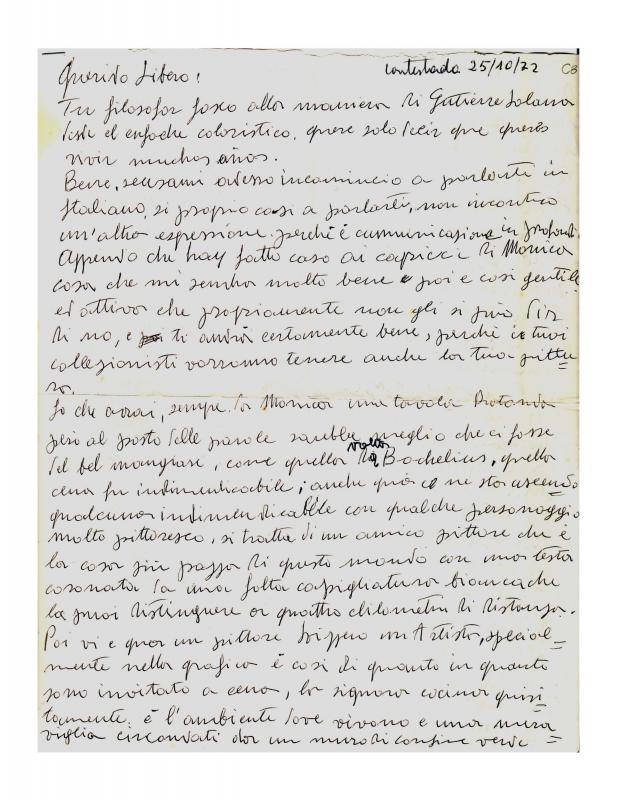 contestada 25/10/72 CB
Querido Libero:
Tu filosofar fosco alla maniera di Gutierre Solana
dede el enfoche coloristico, quere solo decir que querés
vivir muchos años.
Bene, scusami adesso incomincio a parlarti in
Italiano, si proprio così a parlarti, non incontro
un'altra espressione perchè è cummunicasione in profondi
Appendo che hay fatto caso ai capricci di Monica
cosa che mi sembra molto bene e poi e così gentile
ed attiva che propriamente non gli si può dir
di no, e ti andrà certamente bene, perchè i tuoi
collezionisti vorranno tenere anche la tua pittu=
ra.
So che avrai, sempre da Monica una tavola Rotonda
però al posto delle parole sarebbe meglio che ci fosse
del bel mangiare, come quella volta da Bachelius, quella
cena fu indimenticabile; anche quà ce ne sta uscendo
qualcuna indimendicabile con qualche personaggio
molto pittoresco, si tratta di un amico pittore che è
la cosa più pazza di questo mondo con una testa
coronata da una folta capigliatura bianca che
la puoi distinguere a quattro chilometri di distanza.
Poi vi e qua un pittore svizzero un Artista, special=
mente nella grafica è così di quanto in quanto
sono invitato a cena, la signora cocina quisi=
tamente; è l'ambiente dove vivono e una mera
viglia circondati da un muro di confine verde =